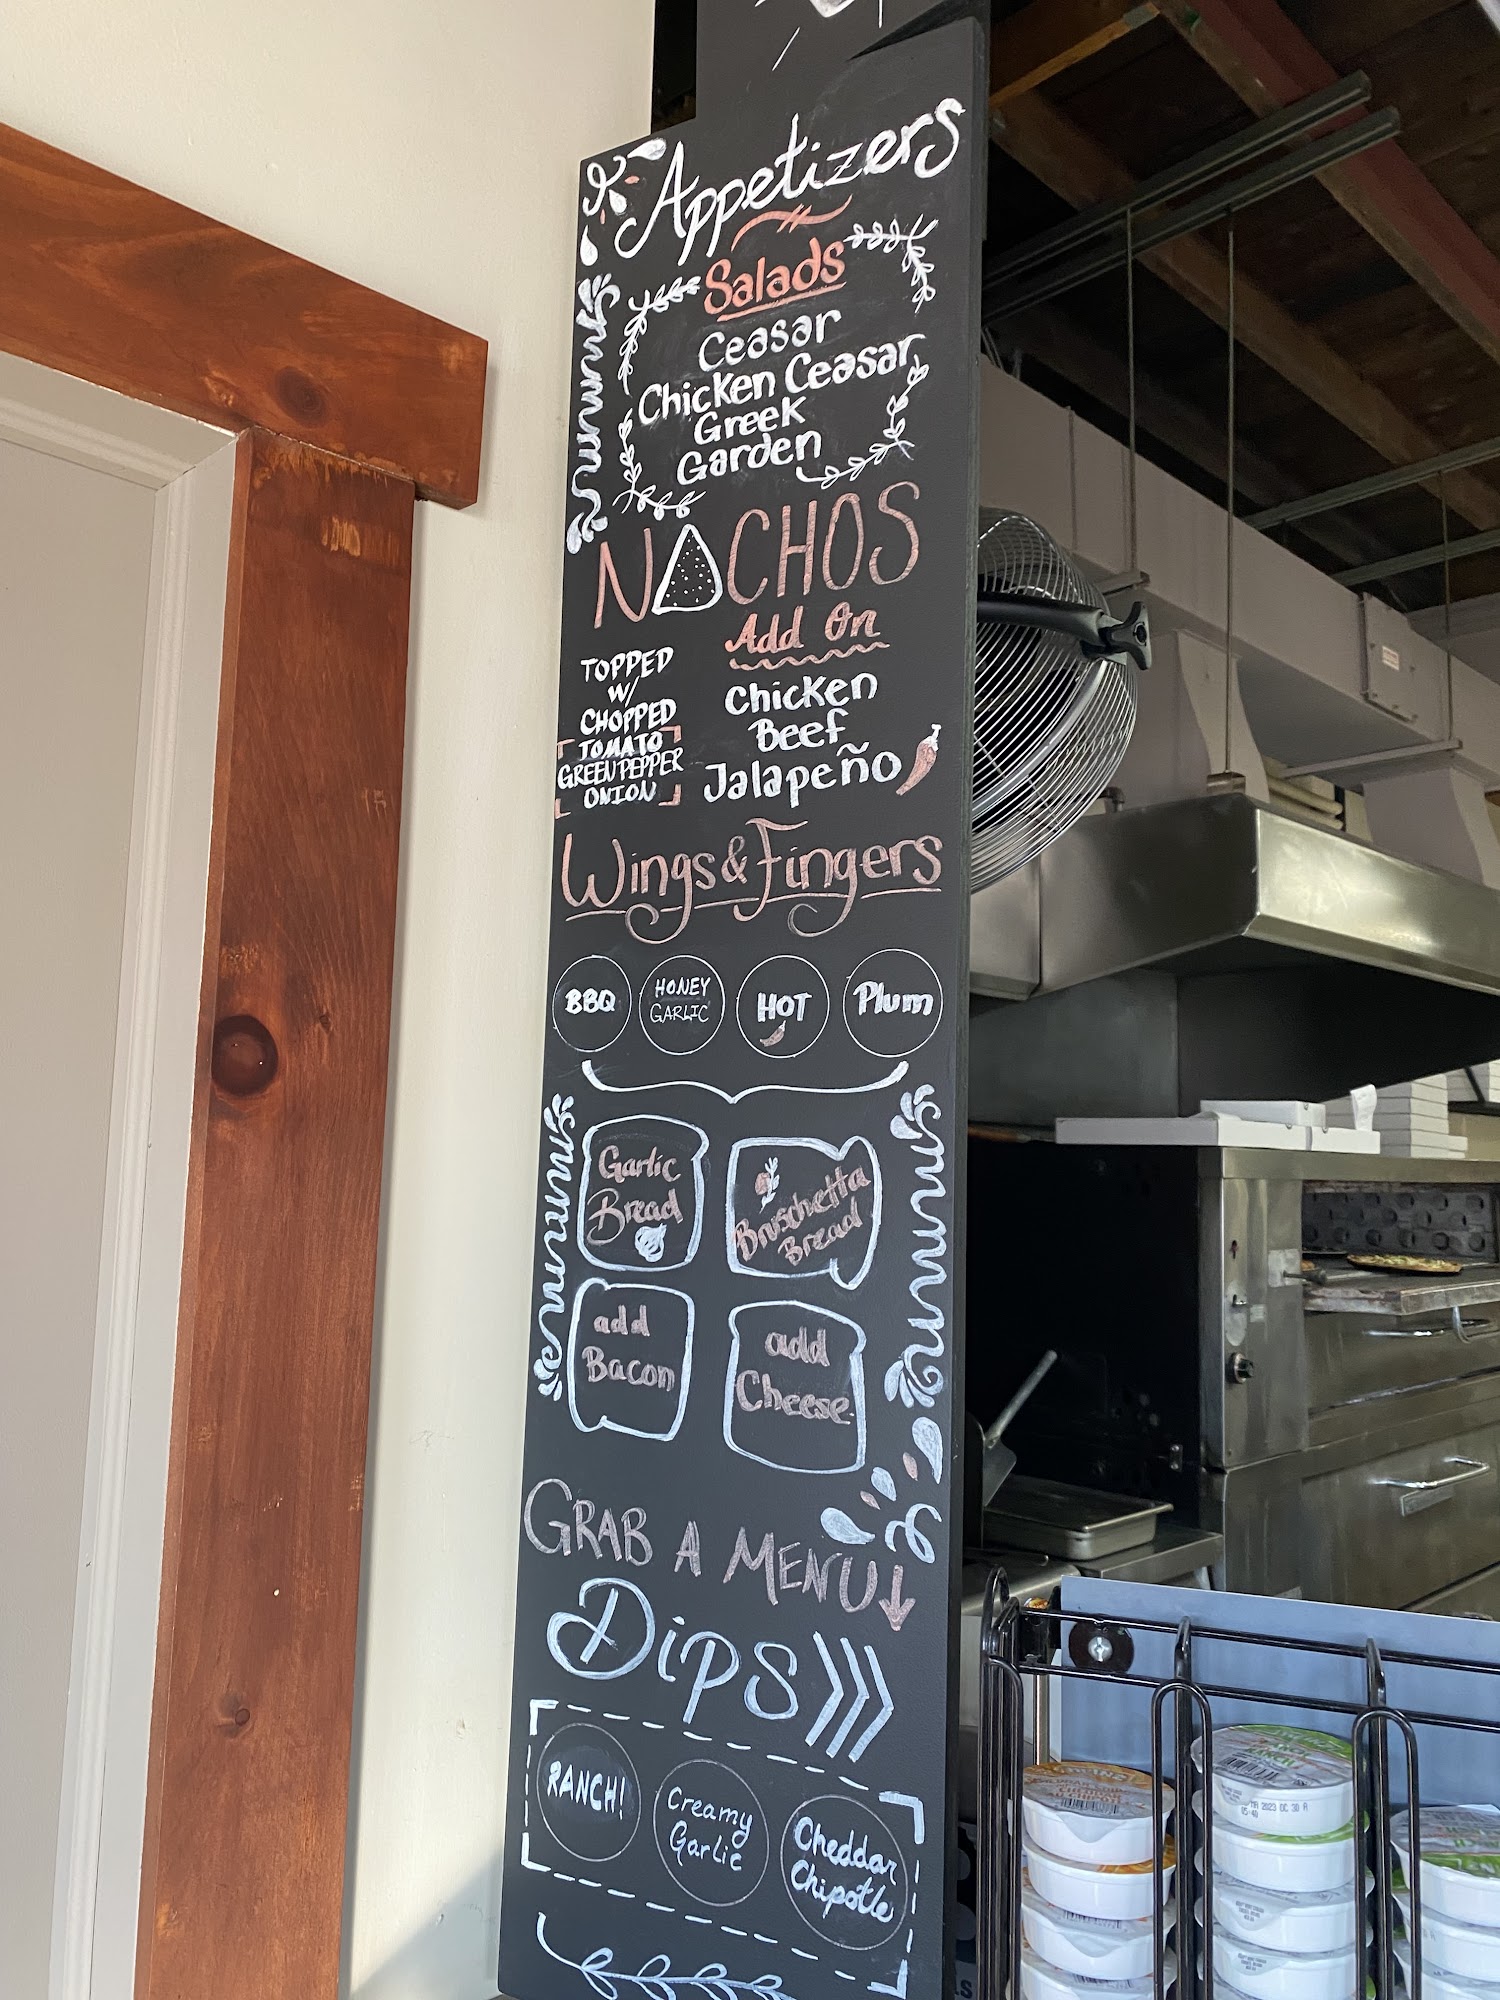 Appetizers
Salads
Ceasar
Chicken Ceasar
Greek
Garden
NACHOS
TOPPED
W/
CHOPPED
TOMATO
GREEN PEPPER
ONION
Add On
Chicken
Beef
Jalapeño
Wings & Fingers
BBQ
HONEY
GARLIC
HOT
Plum
Garlic
Bread
Bruschetta
Bread
add
Bacon
add
Cheese
GRAB A MENU
Dips
RANCH!
Creamy
Garlic
Cheddar
Chipotle